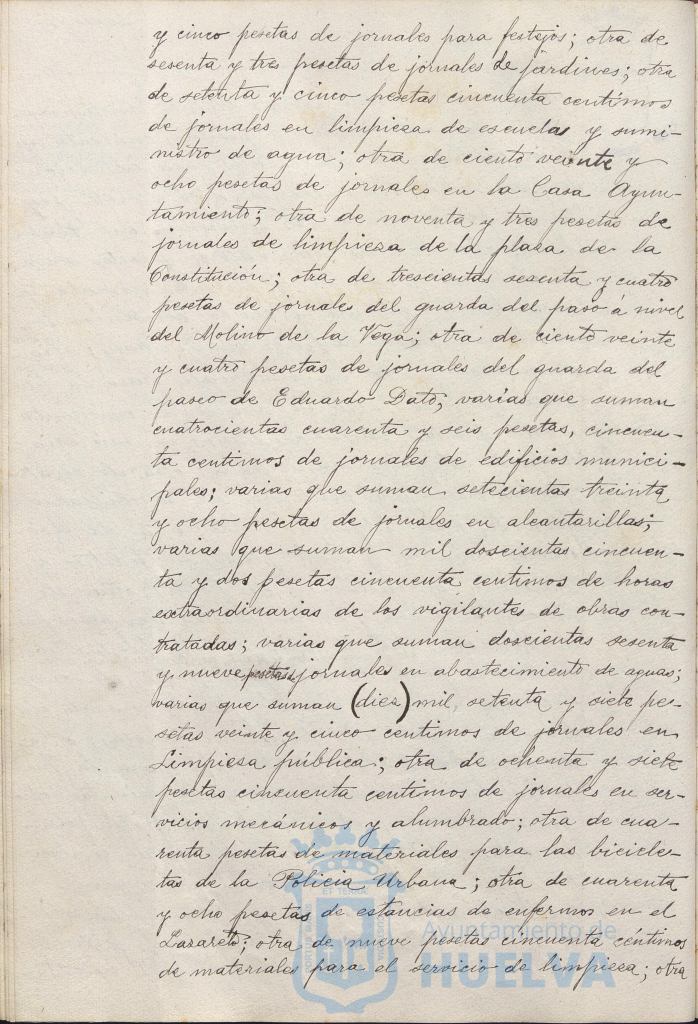 y cinco pesetas de jornales para festejos; otra de
sesenta y tres pesetas de jornales de jardines; otra
de setenta y cinco pesetas cincuenta centimos
de jornales en limpieza de escuelas y sumi-
nistro de agua; otra de ciento veinte y
ocho pesetas de jornales en la Casa Ayun-
tamiento; otra de noventa y tres pesetas de
jornales de limpieza de la plaza de la
Constitución; otra de trescientas sesenta y cuatro
pesetas de jornales del guarda del paso á nivel
del Molino de la Vega; otra de ciento veinte
y cuatro pesetas de jornales del guarda del
paseo de Eduardo Dato; varias que suman
cuatrocientas cuarenta y seis pesetas, cincuen-
ta centimos de jornales de edificios munici-
pales; varias que suman setecientas treinta
y ocho pesetas de jornales en alcantarillas;
varias que suman mil doscientas cincuen-
ta y dos pesetas cincuenta centimos de horas
extraordinarias de los vigilantes de obras con-
tratadas; varias que suman doscientas sesenta
y nueve pesetas jornales en abastecimiento de aguas;
varias que suman (diez) mil, setenta y siete pe-
setas veinte y cinco centimos de jornales en
Limpieza pública; otra de ochenta y siete
pesetas cincuenta centimos de jornales en ser-
vicios mecánicos y alumbrado; otra de cua-
renta pesetas de materiales para las bicicle-
tas de la Policia Urbana; otra de cuarenta
y ocho pesetas de estancias de enfermos en el
Lazareto; otra de nueve pesetas cincuenta céntimos
de materiales para el servicio de limpieza; otra
Ayuntamiento de
HUELVA